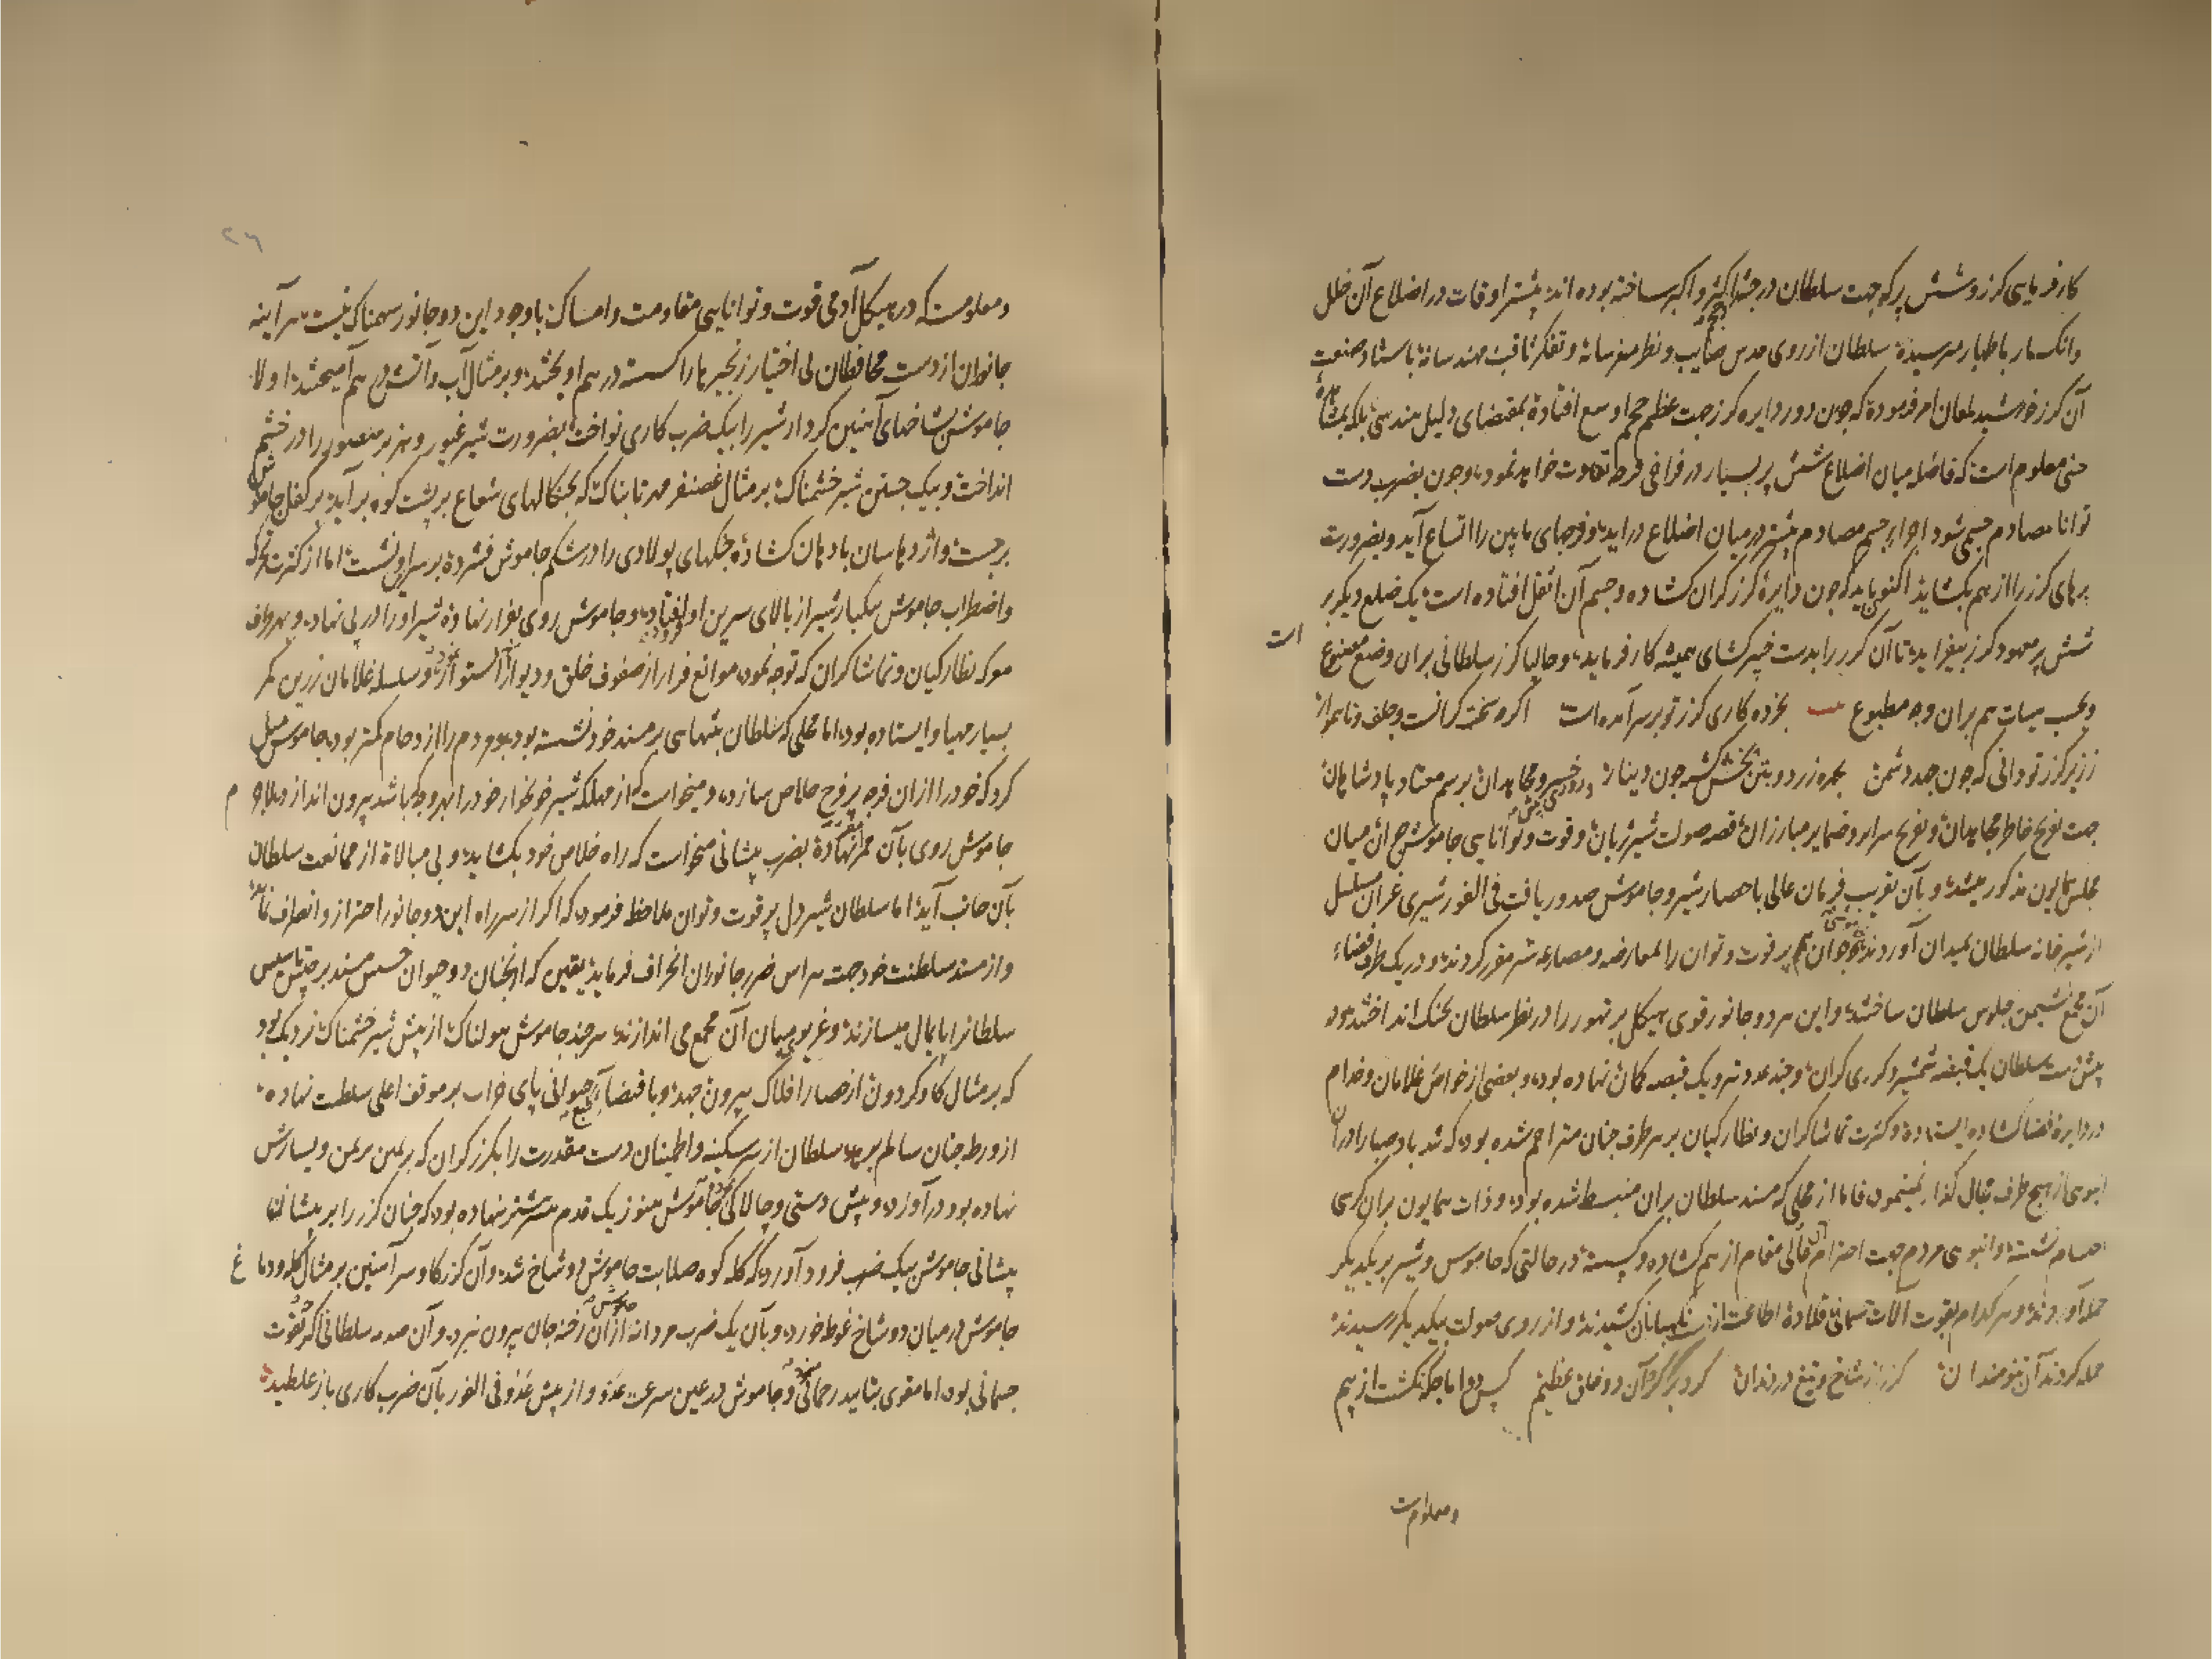 کارفرمایی گرز و شش پر که جهت سلطان در جثه اکثر و اکبر ساخته بوده اند بیشتر اوقات در اضلاع آن خلل
سلطان از روی حدس صایب و نظر متفرسانه و تفکر ثاقب مهندسانه باستاد صنعت
آن گرز خورشید لمعان امر فرموده که چون دور دایره گرز جهت عظم حجم اوسع افتاده بمقتضای دلیل هندسی بلکه بمشاهدهٔ
حسی معلوم است که فاصله میان اضلاع شش پر بسیار در فراخی فرجه تفاوت خواهد نمود و چون بضرب دست
توانا مصادم جسمی شود اجزاء جسم مصادم بیشتر در میان اضلاع دراید و فرجهای مابین را اتساع آید و بضرورت
پرهای گرز را از هم بکشاید اکنون باید که چون دایرهٔ گرز گران کشاده و جسم آن اثقل افتاده است یک ضلع دیگر بر
شش پر معهود گرز بیفزایند تا آن گرز را بدست خیبر کشای همیشه کار فرماید و حالیا گرز سلطانی بران وضع مصنوع است
و بحسب هیات هم بران وجه مطبوع بخرده کاری گرز تو بر سر آمده است اگرچه سخت گرانست و جلف و ناهموار
زر بر گرز تو دانی که چون جهد دشمن بچهره زرد و بتن بخش بخش چون دینار
جهت تفریح خاطر مجاهدان و تفریح سرایر و ضمایر مبارزان قصه صولت شیر ژیان و قوت و توانایی جاموش حران میان
مجلس همایون مذکور میشد و بآن تقریب فرمان عالی باحضار شیر و جاموش صدور یافت فی الفور شیری غران مسلسل
از شیر خانه سلطان بمیدان آوردند پر قوت و توان را بمعارضه و مصارعه شیر مقرر کردند و در یک طرف فضاء
آن مجمع نشیمن جلوس سلطان ساختند و این هر دو جانور قوی هیکل پر تهور را در نظر سلطان بجنک انداختند و در
پیش دست سلطان یک قبضه شمشیر و گرزی گران و چند عدد تیر و یک قبضه کمان نهاده بود و بعضی از خواص غلامان و خدام
در دایره فضا کشاده ایستاده و کثرت تماشاگران و نظارگیان بر هر طرف چنان متراحم شده بود که تند باد صبا را دران
انبوهی از هیچ طرف مجال گذار نمینمود فاما از محلی که مسند سلطان بران منبسط شده بود و ذات همایون بران کرسی
نشسته و انبوهی مردم جهت احترام آن عالی مقام از هم کشاده و گسسته در حالتی که جاموس و شیر بر یکدیگر
حمله آوردند و هر کدام بقوت آلات قلادهٔ اطاعت از دست نگهبانان کشیدند و از روی صولت بیکدیگر رسیدند
حمله کردند آن تنومندان گرز از شاخ و تیغ دندان
و معلومست
۲۶
و معلومست که در هیکل آدمی قوت و توانایی مقاومت و امساک با وجود این دو جانور سهمناک نیست هر آینه
جانوران از دست محافظان بی اختیار زنجیرها را گسسته در هم آویختند و بر مثال آب و آتش در هم آمیختند اولا
جاموش بشاخهای آهنین کردار شیر را بیک ضرب کاری نواخت بضرورت شیر غیور و هزبر را در خشم
انداخت و بیک جستن شیر خشمناک بر مثال غضنفر مهر تابناک که بچنگالهای شعاع بر پشت کوه برآید بر کفل جاموش
برجست و اژدهاسان با دهان کشاده چنگهای پولادی را در شکم جاموش فشرده بر سرین نشست اما از کثرت تحرک
و اضطراب جاموش یکبار شیر از بالای سرین او افتاد و جاموش روی بفرار نهاده شیر او را در پی نهاد و بهر طرف
معرکه نظارگیان و تماشاگران که توجه نمود موانع فرار از صفوف خلق و دیوار و سلسله غلامان زرین کمر
بسیار مهیا و ایستاده بود اما محلی که سلطان بتنهایی بر مسند خود نشسته بود و مردم را ازدحام کمتر بود جاموش میل
کرد که خود را ازان فرجه پر فرح خلاص سازد و میخواست که از مهلکه شیر خونخوار خود را بهر وجه که باشد بیرون اندازد
جاموش روی بآن ممر نهاده بضرب پیشانی میخواست که راه خلاص خود بکشاید و بی مبالاة از ممانعت سلطان
بآن جانب آید اما سلطان شیر دل پر قوت و توان ملاحظه فرمود که اگر از سر راه این دو جانور احتراز و انصراف نماید
و از مسند سلطنت خود جهت هراس ضرر جانوران انحراف فرماید یقین که انچنان دو حیوان خسیس مسند بر جیس تاسیس
سلطانرا پایمال میسازند و غریوی میان آن مجمع می اندازند هر چند جاموش هولناک از پیش شیر خشمناک نزدیک بود
که بر مثال گاو گردون از حصار افلاک بیرون جهد و باقتضاء طبع حیوانی پای خراب بر موقف اعلی سلطنت نهاده
از ورطه چنان سالم برهد سلطان از سر سکینه و اطمینان دست مقدرت را بگرز گران که بر یمین یمن و یسارش
نهاده بود در آورد و پیش دستی و چالاکی نمود جاموش هنوز یک قدم پیشتر ننهاده بود که چنان گرز را بر پیشانی
پیشانی جاموش بیک ضرب فرود آورد که کله کوه صلابت جاموش دو شاخ شد و آن گرز گاو سر آهنین بر مثال کله و دماغ
جاموش در میان دو شاخ غوطه خورد و بآن یک ضرب مردانه جاموس ازان رخنه جان بیرون نبرد و آن صدمه سلطانی اگرچه بقوت
جسمانی بود اما مقوی بتایید رحمانی و جاموش در عین سرعت عدو و از پیش عدو فی الفور بآن ضرب کاری باز غلطید